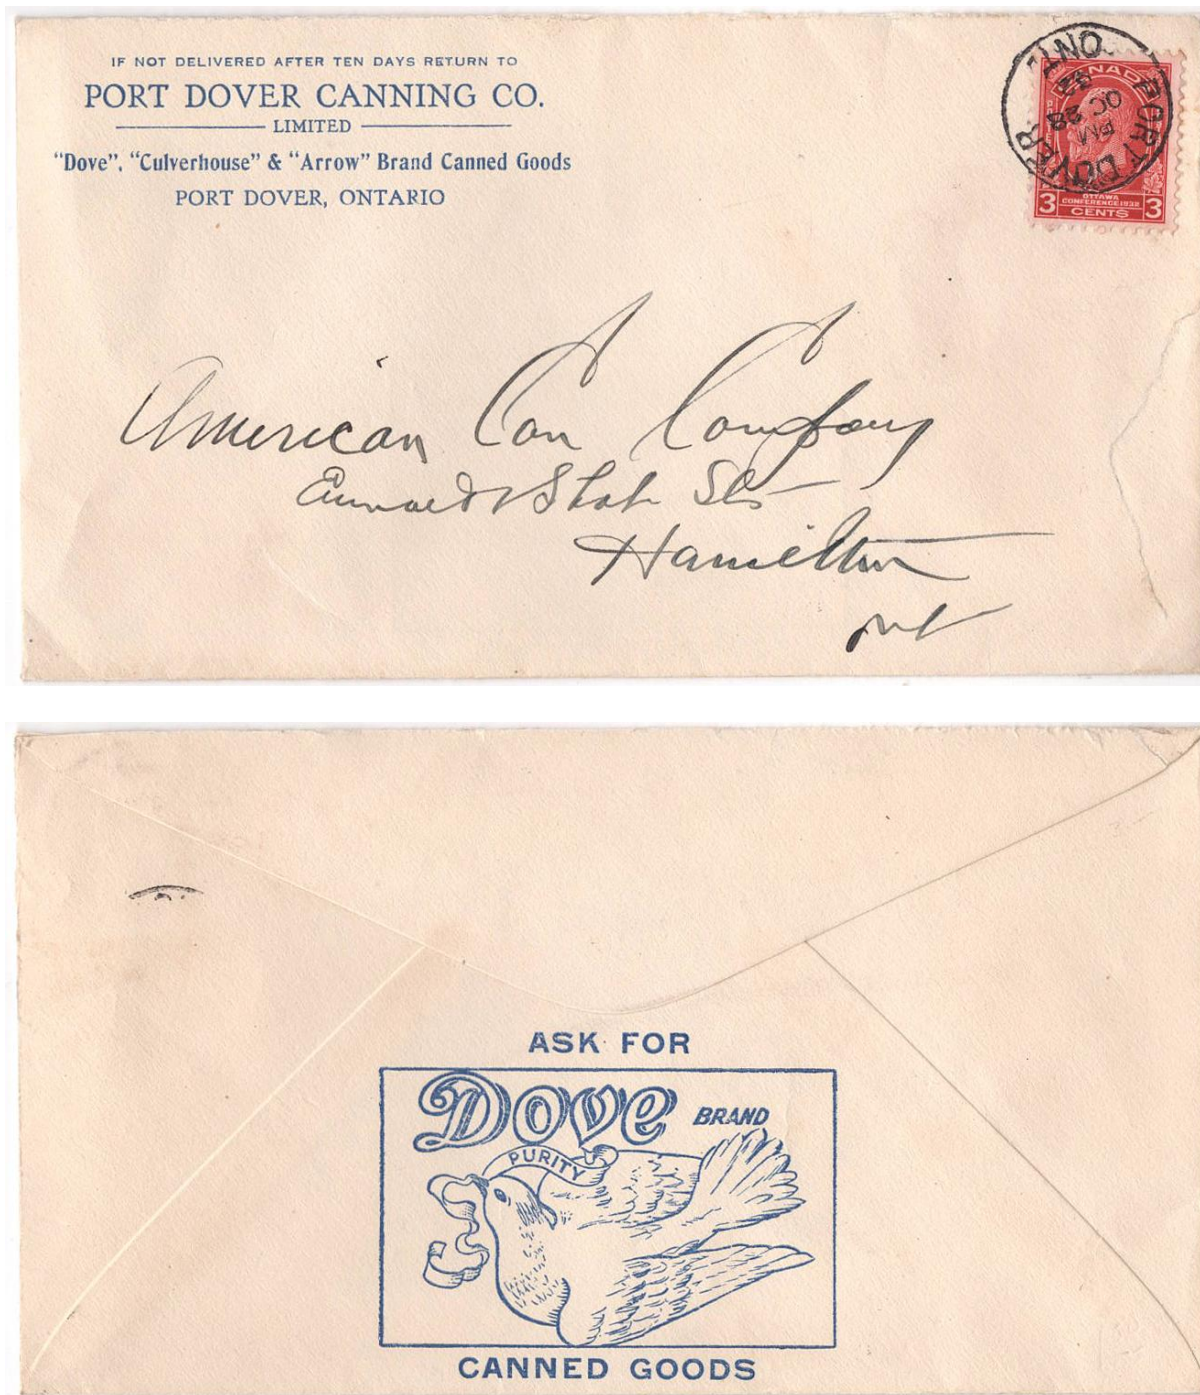 IF NOT DELIVERED AFTER TEN DAYS RETURN TO
PORT DOVER CANNING CO.
LIMITED
"Dove", "Culverhouse" & "Arrow" Brand Canned Goods
PORT DOVER, ONTARIO
PORT DOVER
ONT.
PM
OC 28
32
CANADA
OTTAWA
CONFERENCE 1932
3 CENTS 3
American Can Company
Sts
Hamilton
Ont
ASK FOR
Dove BRAND
PURITY
CANNED GOODS